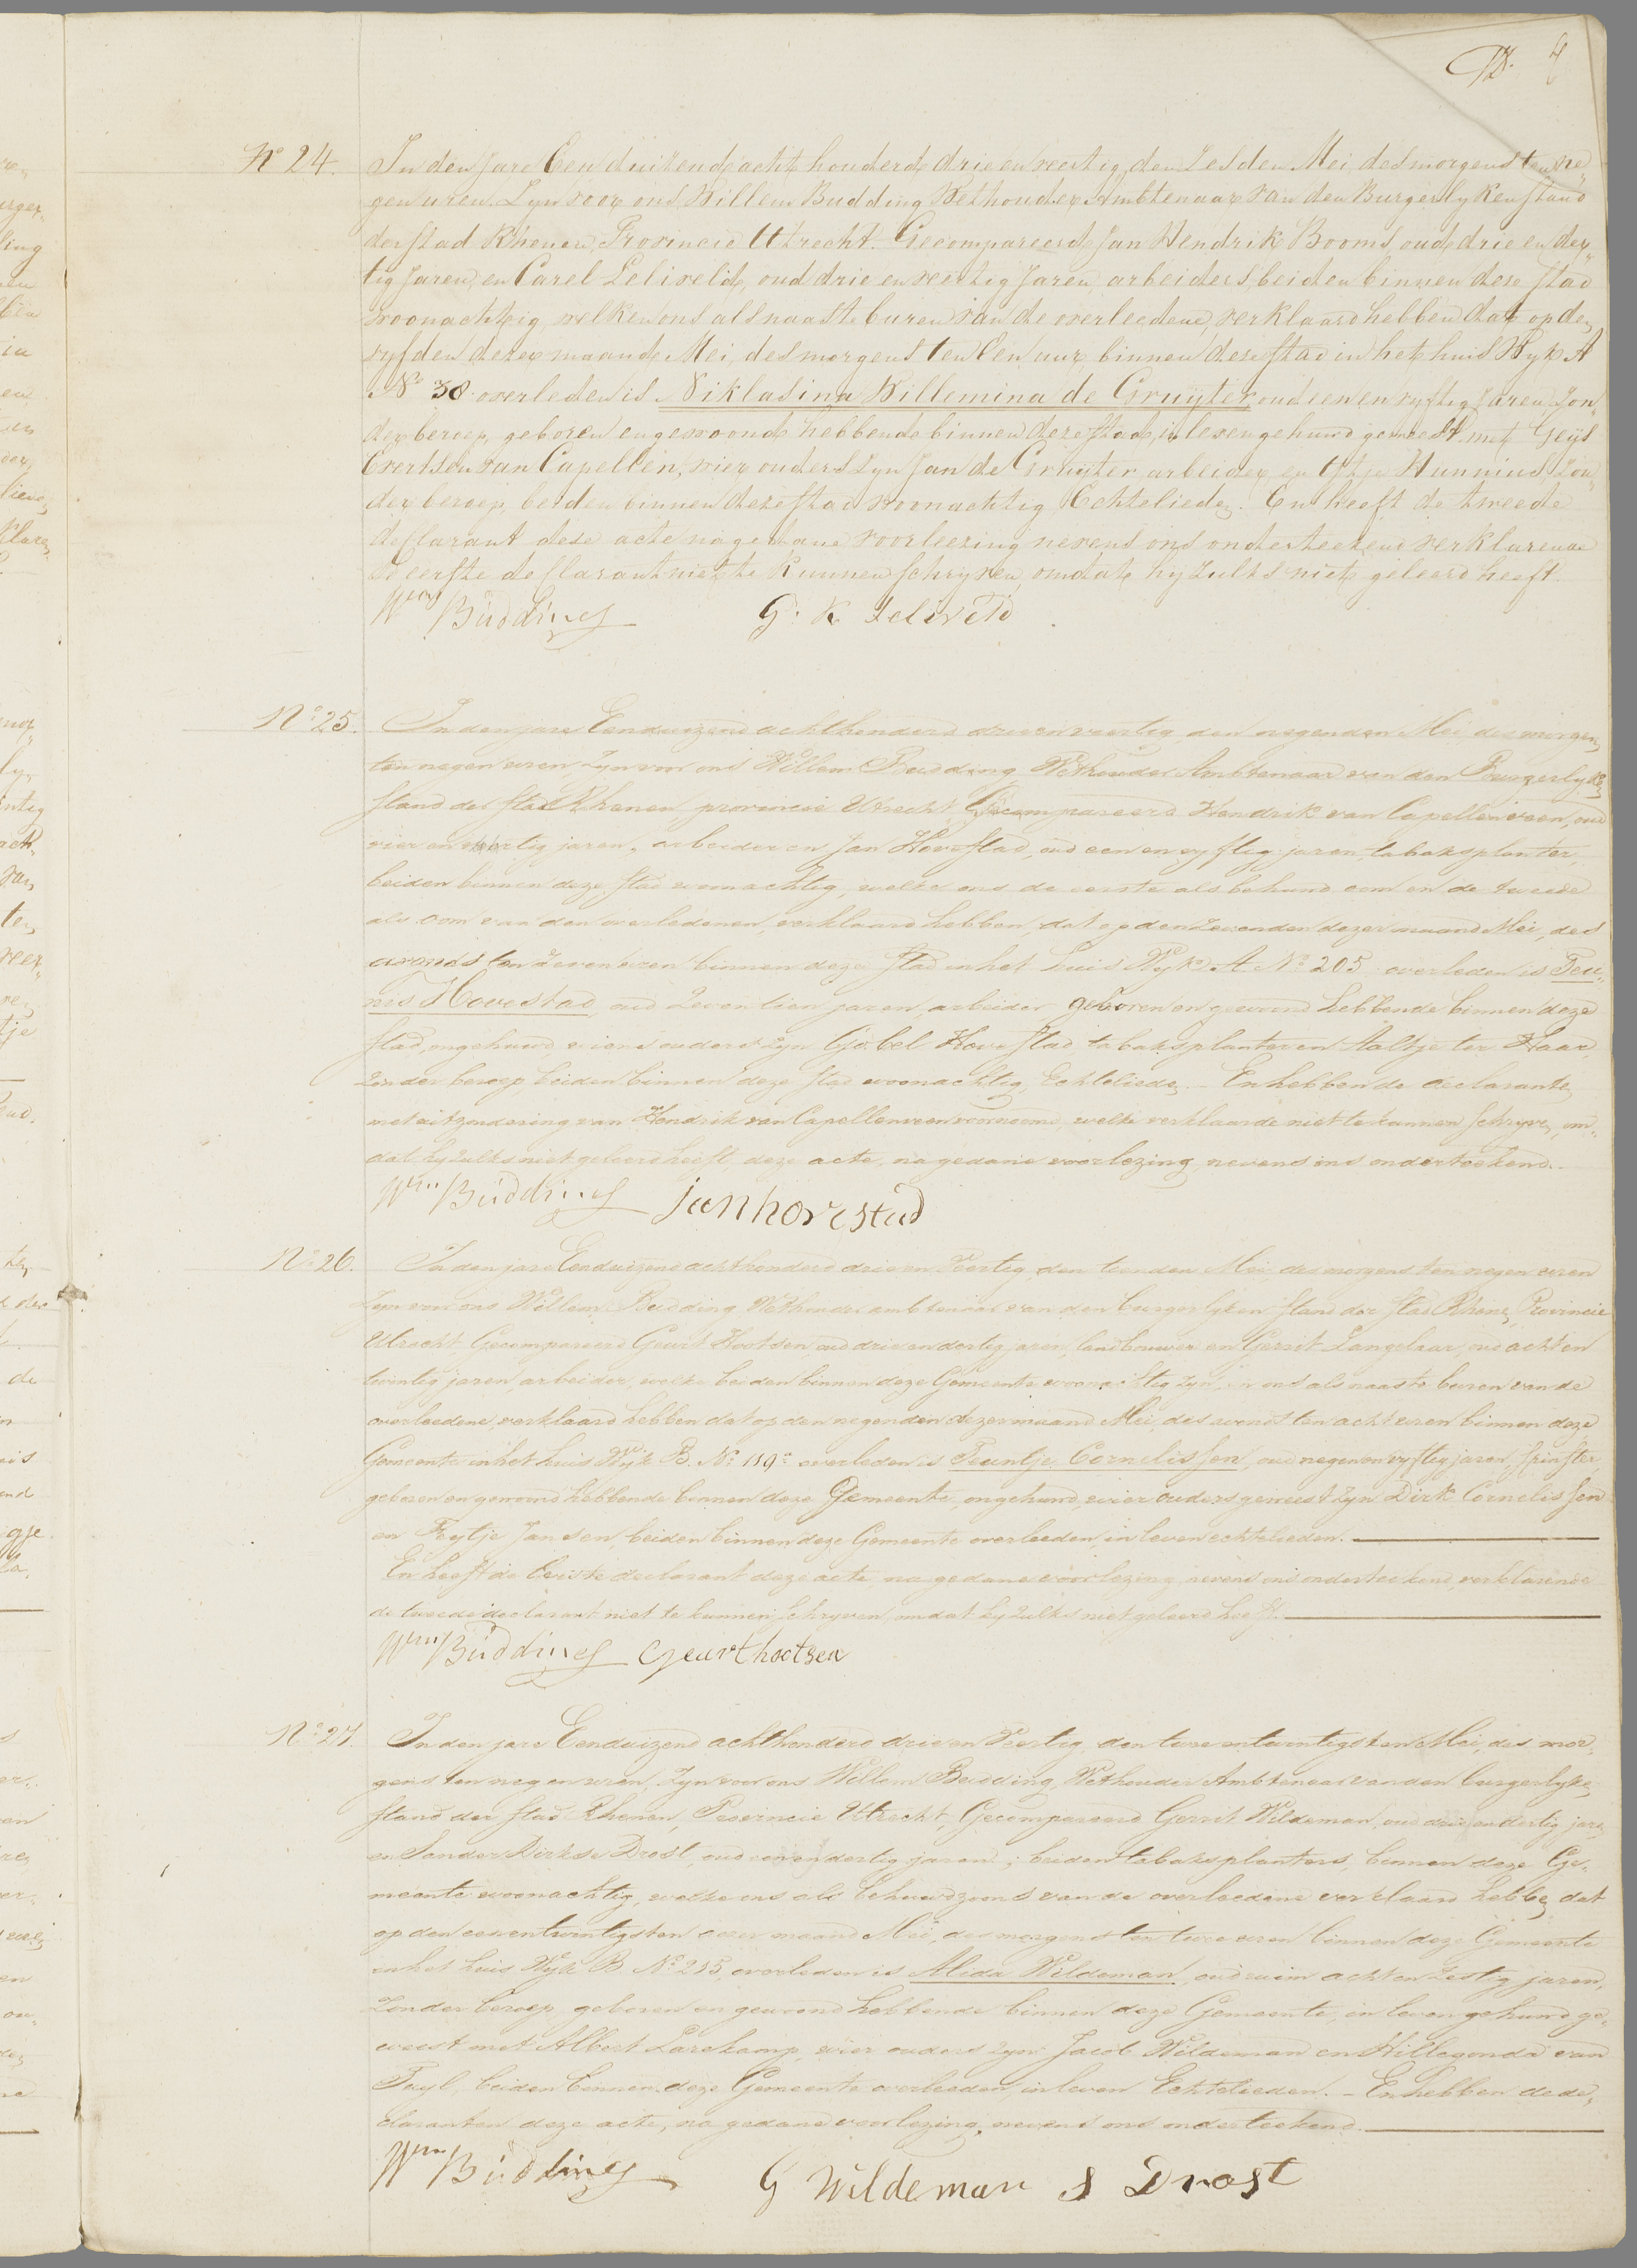 7
No 24.
In den Jare Een duizend acht honderd drie en veertig den Zesden Mei, des morgens ten ne¬
gen uren. Zyn voor ons, Willem Budding Wethouder Ambtenaar van den Burgerlyken stand
der stad Rhenen, Provincie Utrecht. Gecompareerd Jan Hendrik Booms, oud drie en der¬
tig Jaren, en Carel Leliveld, oud drie en veertig Jaren, arbeiders, beiden binnen deze stad
woonachtig, welken ons als naaste buren van de overledene, verklaard hebben dat op den
vyfden dezer maand Mei, des morgens ten Een uur, binnen deze stad in het huis Wyk A
No 38 overleden is Niklasina Willemina de Gruyter, oud een en vyftig Jaren, Zon¬
der beroep, geboren en gewoond hebbende binnen deze stad, in leven gehuwd geweest met Gijs
Evertsen van Capellen, wier ouders Zyn Jan de Gruyter, arbeider en Hunnius, Zon¬
der beroep, beiden binnen deze stad woonachtig, Echtelieden. En heeft de tweede
deklarant deze acte na gedane voorleezing nevens ons onderteekend verklarende
de eerste deklarant niet te kunnen schryven, omdat hy Zulks niet geleerd heeft.
Wm Budding G. K Leliveld
No 25.
In den jare Eenduizend achthonderd drieenveertig den negenden Mei des morgens
ten negen uren, Zyn voor ons Willem Budding, Wethouder Ambtenaar van den Burgerlyken
stand der stad Rhenen, provincie Utrecht, Gecompareerd Hendrik van Capellenveen, oud
vier en jaren, arbeider en Jan Hovestad, oud een en vyftig jaren, tabaksplanter,
beiden binnen deze stad woonachtig, welke ons de eerste als behuwd oom en de tweede
als oom van den overledenen, verklaard hebben, dat op den zevenden dezer maand Mei, des
avonds ten Zeven uren binnen deze stad in het huis Wyk A No 205 overleden is Teu¬
nes Hovestad, oud Zeventien jaren, arbeider geboren en gewoond hebbende binnen deze
stad, ongehuwd, wiens ouders zyn Gysbel Hovestad tabaksplanter en Aaltje ter Haar
Zonder beroep, beiden binnen deze stad woonachtig, Echtelieden. - En hebben de declaranten
met uitzondering van Hendrik van Capellenveen voornoemd, welke verklaarde niet te kunnen schryven, om¬
dat hy zulks niet geleerd heeft, deze acte, na gedane voorlezing, nevens ons onderteekend.
Wm Budding jan hovestad
No 26.
In den jare Eenduizend achthonderd drie en Veertig, den tienden Mei des morgens ten negen uren
Zyn voor ons Willem Budding Wethouder ambtenaar van den burgerlyken stand der stad Rhenen, Provincie
Utrecht Gecompareerd Geurt Hootsen, oud drie en dertig jaren, landbouwer en Gerrit Langelaar, oud acht en
twintig jaren, arbeider, welke beiden binnen deze Gemeente woonachtig zyn, en ons als naaste buren van de
overledene, verklaard hebben dat op den negenden dezer maand Mei, des avonds ten acht uren binnen deze
Gemeente in het huis Wyk B. No 119a overleden is Teuntje Cornelissen, oud negen en vyftig jaren, spinster,
geboren en gewoond hebbende binnen deze Gemeente, ongehuwd, wier ouders geweest zyn Dirk Cornelissen
en Fytje Jansen, beiden binnen deze Gemeente overleeden, in leven echtelieden.
En heeft de Eerste declarant deze acte na gedane voorlezing, nevens ons onderteekend, verklarende
de tweede declarant niet te kunnen schryven, omdat hy zulks niet geleerd heeft.
Wm Budding Geurt hootsen
No 27.
In den jare Eenduizend achthonderd drie en Veertig, den twee en twintigsten Mei, des mor¬
gens ten negen uren, Zyn voor ons Willem Budding, Wethouder Ambtenaar van den burgerlyken
stand der stad Rhenen, Provincie Utrecht, Gecompareerd Gerrit Wildeman, oud drie en dertig jaren
en Sander Dirkse Drost, oud een en dertig jaren; beiden tabaksplanters, binnen deze Ge¬
meente woonachtig, welke ons als behuwdzoons van de overledene verklaard hebben dat
op den een en twintigsten dezer maand Mei, des morgens ten twee uren binnen deze Gemeente
in het huis Wyk B No 215, overleden is Alida Wildeman, oud ruim acht en Zestig jaren,
Zonder beroep, geboren en gewoond hebbende binnen deze Gemeente, in leven gehuwd ge¬
weest met Albert Larekamp, wier ouders zyn Jacob Wildeman en Hillegonda van
Tuyl, beiden binnen deze Gemeente overleeden, in leven Echtelieden. - En hebben de de¬
claranten deze acte, na gedane voorlezing, nevens ons onderteekend.
Wm Budding G Wildeman S Drost